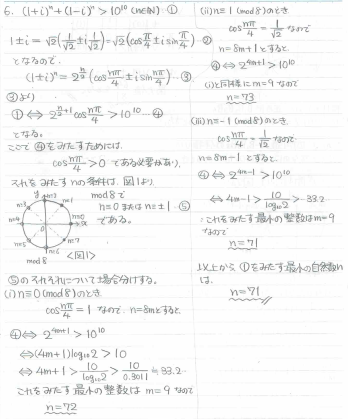 6. (1+i)ⁿ+(1-i)ⁿ > 10¹⁰ (n∈N) … ①
1±i = √2(1/√2 ± i 1/√2) = √2(cos π/4 ± i sin π/4) … ②
となるので、
(1±i)ⁿ = 2^(n/2)(cos nπ/4 ± i sin nπ/4) … ③
③より
① ⇔ 2^(n/2+1) cos nπ/4 > 10¹⁰ … ④
となる。
ここで ④をみたすためには、
cos nπ/4 > 0 である必要があり、
それをみたす nの条件は、図1より、
mod 8で
n≡0 または n≡±1 … ⑤
である。
y
n=2
n=3
n=1
n=4
n=0
x
0
n=5
n=7
n=6
mod 8
<図1>
⑤のそれぞれについて場合分けする。
(i) n≡0 (mod 8)のとき
cos nπ/4 = 1 なので、n=8mとすると
④ ⇔ 2^(4m+1) > 10¹⁰
⇔ (4m+1) log₁₀2 > 10
⇔ 4m+1 > 10/log₁₀2 > 10/0.3011 ≒ 33.2…
これをみたす最小の整数は m=9 なので
n=72
(ii) n≡1 (mod 8)のとき
cos nπ/4 = 1/√2 なので
n=8m+1とすると、
④ ⇔ 2^(4m+1) > 10¹⁰
(i)と同様に m=9 なので
n=73
(iii) n≡-1 (mod 8)のとき、
cos nπ/4 = 1/√2 なので、
n=8m-1 とすると、
④ ⇔ 2^(4m-1) > 10¹⁰
⇔ 4m-1 > 10/log₁₀2 > 33.2…
これをみたす最小の整数は m=9
なので
n=71
以上から ①をみたす最小の自然数n
は、
n=71